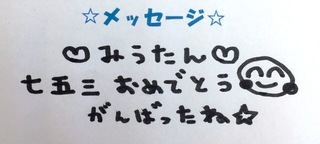 ☆メッセージ☆
♡みうたん♡
七五三 おめでとう
がんばったね☆